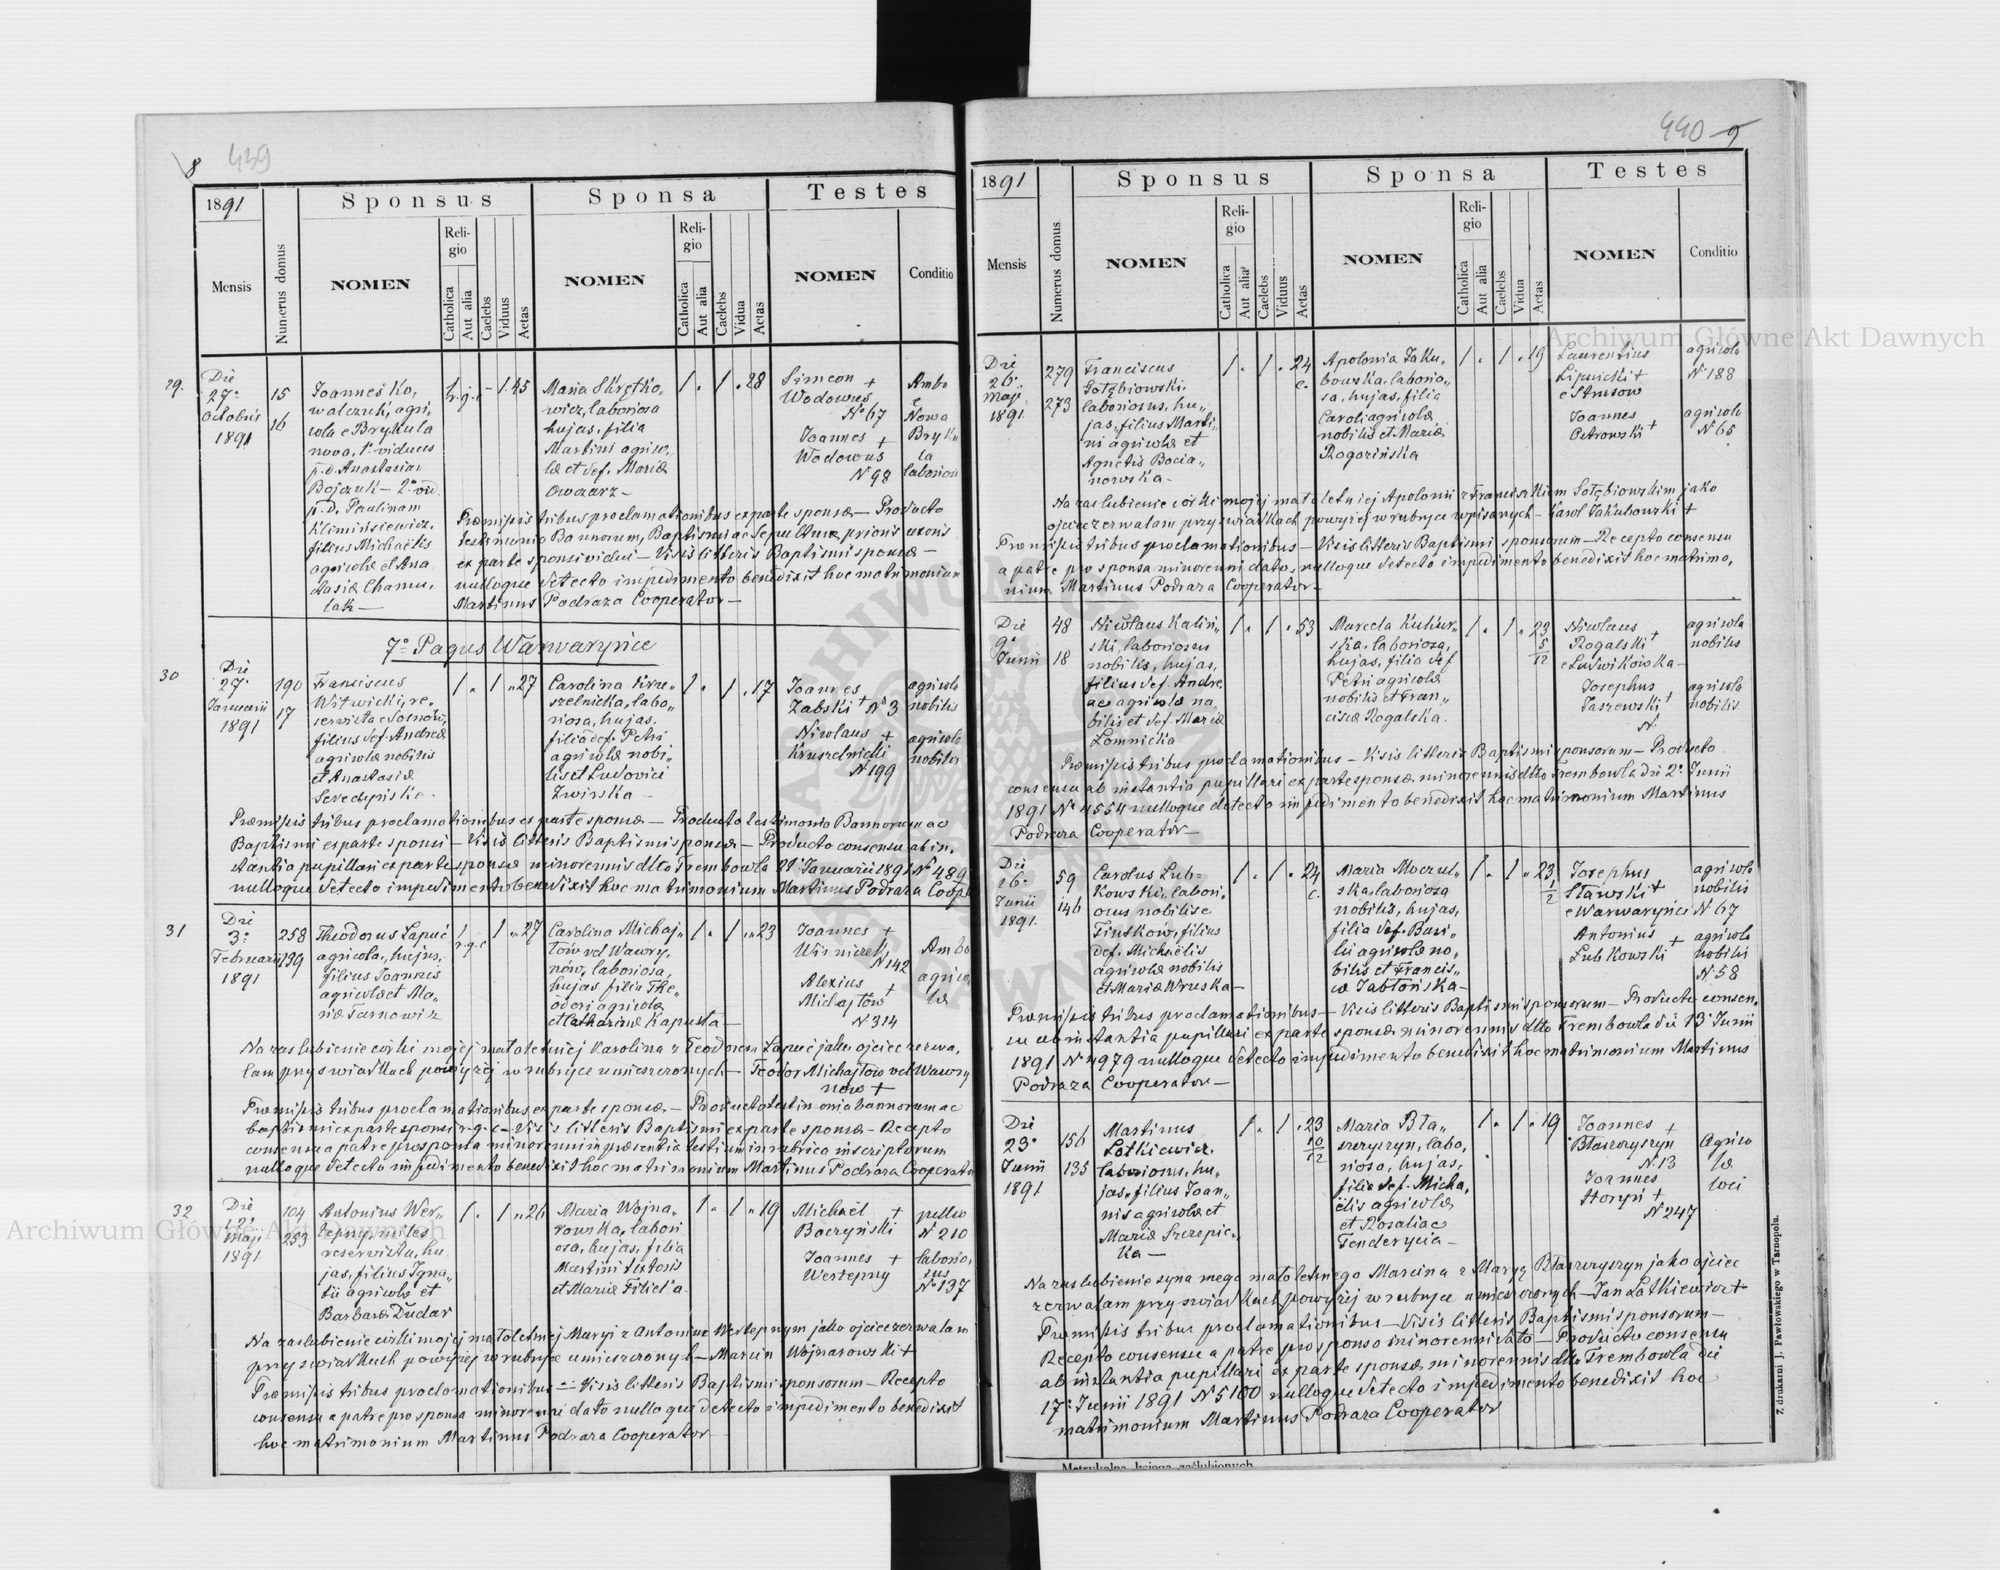 8 439
1891
Sponsus
Sponsa
Testes
Mensis
Numerus domus
NOMEN
Religio
Catholica
Aut alia
Caelebs
Viduus
Aetas
NOMEN
Religio
Catholica
Aut alia
Caelebs
Vidua
Aetas
NOMEN
Conditio
29.
Die
27ª
Octobris
1891
15
16
Joannes Ko,
walczuk, agri,
cola e Brykula
nova, 1º viduus
p.d. Anastasiam
Bojczuk – 2º vid.
p.d. Paulinam
Klimińsiewicz,
filius Michaëlis
agricolæ et Ana
stasiæ Chamu,
lak —
1 r.g.c – 1. 45
Maria Skrętko,
wicz, laboriosa
hujas, filia
Martini agrico,
læ et def. Mariæ
Owczarz –
1 . 1 . 28
Simeon +
Wodowus
Nº 67
Joannes +
Wodowus
N 98
Ambo
e
Nowa
Bryku
la
laboriosi
Præmissis tribus proclamationibus ex parte sponsæ – Producto
testimonio Bannorum, Baptismi ac Sepulturæ prioris uxoris
ex parte sponsi vidui – Visis litteris Baptismi sponsæ –
nulloque detecto impedimento benedixit hoc matrimonium
Martinus Podraza Cooperator –
7º Pagus Warwaryńce
30
Die
27ª
Januarii
1891
190
17
Franciscus
Witwicki, re,
servista e Sosnów,
filius def. Andreæ
agricolæ nobilis
et Anastasiæ
Seredyńska –
1 . 1 „ 27
Carolina Kru,
szelnicka, labo,
riosa, hujas,
filia def. Petri
agricolæ nobi„
lis et Ludovici
Zwirska –
1 . 1 . 17
Joannes
Zabski + Nº 3
Nicolaus +
Kruszelnicki
N 199
agricola
nobilis
agricola
nobilis
Præmissis tribus proclamationibus ex parte sponsæ – Producto testimonio Bannorum ac
Baptismi ex parte sponsi – Visis litteris Baptismi sponsæ – Producto consensu ab in,
stantia pupillari ex parte sponsæ minorennis dtto Trembowla 21 Januarii 1891 Nº 489
nulloque detecto impedimento benedixit hoc matrimonium Martinus Podraza Coop
31
Die
3ª
Februarii
1891
258
139
Theodorus Łapuć
agricola, hujas,
filius Joannis
agricolæ et Ma,
riæ Tarnowicz
1 r.g.c 1 „ 27
Carolina Michaj„
łów vel Wawry,
nów, laboriosa,
hujas filia The,
odori agricolæ
et Catharinæ Kapusta –
1 . 1 „ 23
Joannes +
N 142
Alexius +
Michajłów
N 314
Ambo
agrico,
læ
Na zaslubienie córki mojej małoletniej Karolina z Teodorem Łapuć jako ojciec zezwa,
lam przy swiadkach powyżéj w rubryce umieszczonych – Teodor Michajłow vel Wawry
now +
Præmissis tribus proclamationibus ex parte sponsæ – Producto testimonio bannorum ac
baptismi ex parte sponsi r.g.c – Visis litteris Baptismi ex parte sponsæ – Recepto
consensu a patre pro sponsa minorenni in præsentia testium in rubrica inscriptorum
nulloque detecto impedimento benedixit hoc matrimonium Martinus Podraza Cooperator
32
Die
12ª
Maji
1891
104
253
Antonius Wer„
tepny, miles
reservista, hu
jas, filius Igna„
tii agricolæ et
Barbaræ Dudar
1 . 1 „ 26
Maria Wojna„
rowska, labori
osa, hujas, filia
Martini
et Mariæ
1 . 1 „ 19
Michaël +
Baczyński
Joannes +
Wertepny
N 210
laborio,
sus
Nº 137
Na zaslubienie córki mojej małoletniej Maryi z Antonim Wertepnym jako ojciec zezwalam
przy swiadkach powyżej w rubryce umieszczonych – Marcin Wojnarowski +
Præmissis tribus proclamationibus – Visis litteris Baptismi sponsorum – Recepto
consensu a patre pro sponsa minorenni dato nulloque detecto impedimento benedixit
hoc matrimonium Martinus Podraza Cooperator –
440 9
1891
Sponsus
Sponsa
Testes
Mensis
Numerus domus
NOMEN
Religio
Catholica
Aut alia
Caelebs
Viduus
Aetas
NOMEN
Religio
Catholica
Aut alia
Caelebs
Vidua
Aetas
NOMEN
Conditio
Die
26ª
Maji
1891
279
273
Franciscus
Gołębiowski
laboriosus, hu„
jas, filius Marti„
ni agricolæ et
Agnetis Bocia„
nowska –
1 . 1 . 24
c.
Apolonia Jaku„
bowska, laborio„
sa, hujas, filia
Caroli agricolæ
nobilis et Mariæ
Rogozińska
1 . 1 . 19
Laurentius
Lipnicki +
Joannes +
Ostrowski
agricola
N 188
agricola
N 65
Na zaslubienie córki mojej małoletniej Apolonii z Franciszkiem Gołębiowskim jako
ojciec zezwalam przy swiadkach powyżej w rubryce wpisanych – Karol Jakubowski +
Præmissis tribus proclamationibus – Visis litteris Baptismi sponsorum – Recepto consensu
a patre pro sponsa minorenni dato, nulloque detecto impedimento benedixit hoc matrimo,
nium Martinus Podraza Cooperator –
Die
9ª
Junii
48
18
Nicolaus Kalin„
ski, laboriosus
nobilis, hujas,
filius def. Andre,
ae agricolæ no
bilis et def. Mariæ
Łomnicka
1 . 1 . 53
Marcela Kukur„
ska, laboriosa,
hujas, filia def
Petri agricolæ
nobilis et Fran„
ciscæ Rogalska.
1 . 1 „ 23
5/12
Nicolaus
Rogalski +
e Ludwikówka –
Josephus
Jaszewski +
N
agricola
nobilis
agricola
nobilis
Præmissis tribus proclamationibus – Visis litteris Baptismi sponsorum – Producto
consensu ab instantia pupillari ex parte sponsæ minorennis dtto Trembowla die 2ª Junii
1891 Nº 4554 nulloque detecto impedimento benedixit hoc matrimonium Martinus
Podraza Cooperator –
Die
16ª
Junii
1891.
59
146
Carolus Lub„
kowski, labori,
osus nobilis e
filius
def. Michaëlis
agricolæ nobilis
et Mariæ Wruska –
1 . 1 . 24
c.
Maria Moczul„
ska, laboriosa
nobilis, hujas,
filia def. Basi„
lii agricolæ no,
bilis et Francis„
cæ Jabłońska –
1 . 1 „ 23
1/2
Josephus
Sławski +
e Warwaryńce
Antonius +
Lubkowski
agricola
nobilis
N 67
agricola
nobilis
N 58
Præmissis tribus proclamationibus – Visis litteris Baptismi sponsorum – Producto consen„
su ab instantia pupillari ex parte sponsæ minorennis dtto Trembowla die 13 Junii
1891 Nº 4979 nulloque detecto impedimento benedixit hoc matrimonium Martinus
Podraza Cooperator –
Die
23ª
Junii
1891
156
135
Martinus
Łotkiewicz,
laboriosus, hu„
jas, filius Joan„
nis agricolæ et
Mariæ Szczepic„
ka –
1 . 1 . 23
10/12
Maria Bła„
szczyszyn, labo,
riosa, hujas,
filia def. Micha,
ëlis agricolæ
et Rosaliae
Fenderycia –
1 . 1 . 19
Joannes +
Błaszczyszyn
N. 13
Joannes
Horyń +
N 247
Agrico
læ
loci
Na zaslubienie syna mego małoletnego Marcina z Maryą Błaszczyszyn jako ojciec
zezwalam przy swiadkach powyżej w rubryce umieszczonych – Jan Łatkiewicz +
Præmissis tribus proclamationibus – Visis litteris Baptismi sponsorum –
Recepto consensu a patre pro sponso minorenni dato – Producto consensu
ab instantia pupillari ex parte sponsæ minorennis dtto Trembowla die
17ª Junii 1891 Nº 5100 nulloque detecto impedimento benedixit hoc
matrimonium Martinus Podraza Cooperator
Metrykalna księga zaślubionych
Z drukarni J. Pawłowskiego w Tarnopolu.
Archiwum Główne Akt Dawnych
Archiwum Główne Akt Dawnych